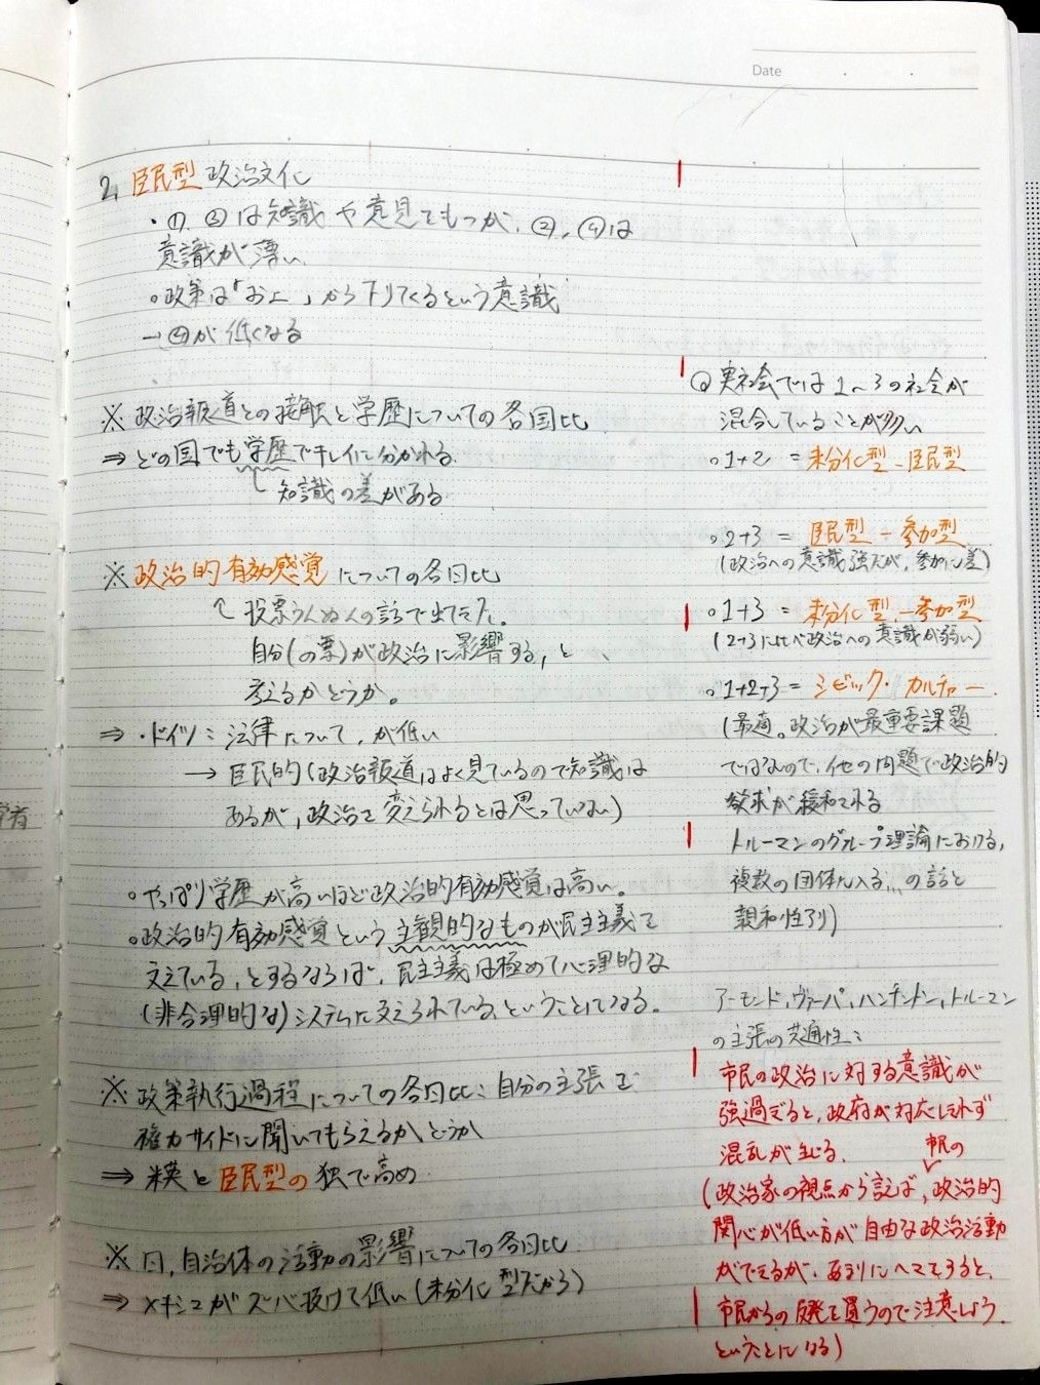 Date
2, 臣民型 政治文化
・①,③は知識や意見をもつが、②,④は
意識が薄い
。政策は「お上」から下りてくるという意識
→④が低くなる
※ 政治報道との接触と学歴についての各国比
⇒ どの国でも学歴でキレイに分かれる
知識の差がある
※ 政治的有効感覚についての各国比
投票うんぬんの話で出てきた。
自分(の票)が政治に影響する,と
考えるかどうか。
⇒ ・ドイツ:法律について,が低い
→ 臣民的(政治報道はよく見ているので知識は
あるが,政治を変えられるとは思っていない)
。やっぱり学歴が高いほど政治的有効感覚は高い。
。政治的有効感覚という主観的なものが民主主義を
支えている,とするならば,民主主義は極めて心理的な
(非合理的な)システムに支えられている,ということになる。
※ 政策執行過程についての各国比:自分の主張を
権力サイドに聞いてもらえるかどうか
⇒ 米英と臣民型の独で高め
※ 国,自治体の活動の影響についての各国比
⇒ メキシコがズバ抜けて低い(未分化型だから)
実社会では1〜3の社会が
混合していることが多い
。1+2 = 未分化型-臣民型
。2+3 = 臣民型-参加型
(政治への意識強だが,参加に差)
。1+3 = 未分化型-参加型
(2+3に比べ政治への意識が弱い)
。1+2+3= シビック・カルチャー
(最適。政治が最重要課題
ではないので,他の問題で政治的
欲求が緩和される
トルーマンのグループ理論における,
複数の団体に入る…の話と
親和性アリ)
アーモンド,ヴァーバ,ハンチントン,トルーマン
の主張の共通性:
市民の政治に対する意識が
強過ぎると,政府が対応しきれず
混乱が生じる。
市民の
(政治家の視点から言えば,政治的
関心が低い方が自由な政治活動
ができるが,あまりにヘマをすると,
市民からの反発を買うので注意しよう
ということになる)
者